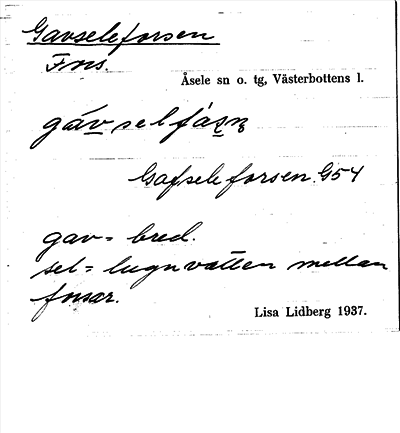 Gavseleforsen
Fns.
Åsele sn o. tg, Västerbottens l.
gáv sel fásn
Gafsele forsen. G54
gav = bred.
sel = lugnvatten mellan
forsar.
Lisa Lidberg 1937.